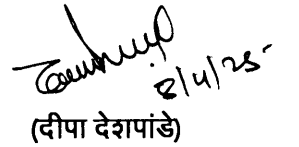 8/4/25
(दीपा देशपांडे)